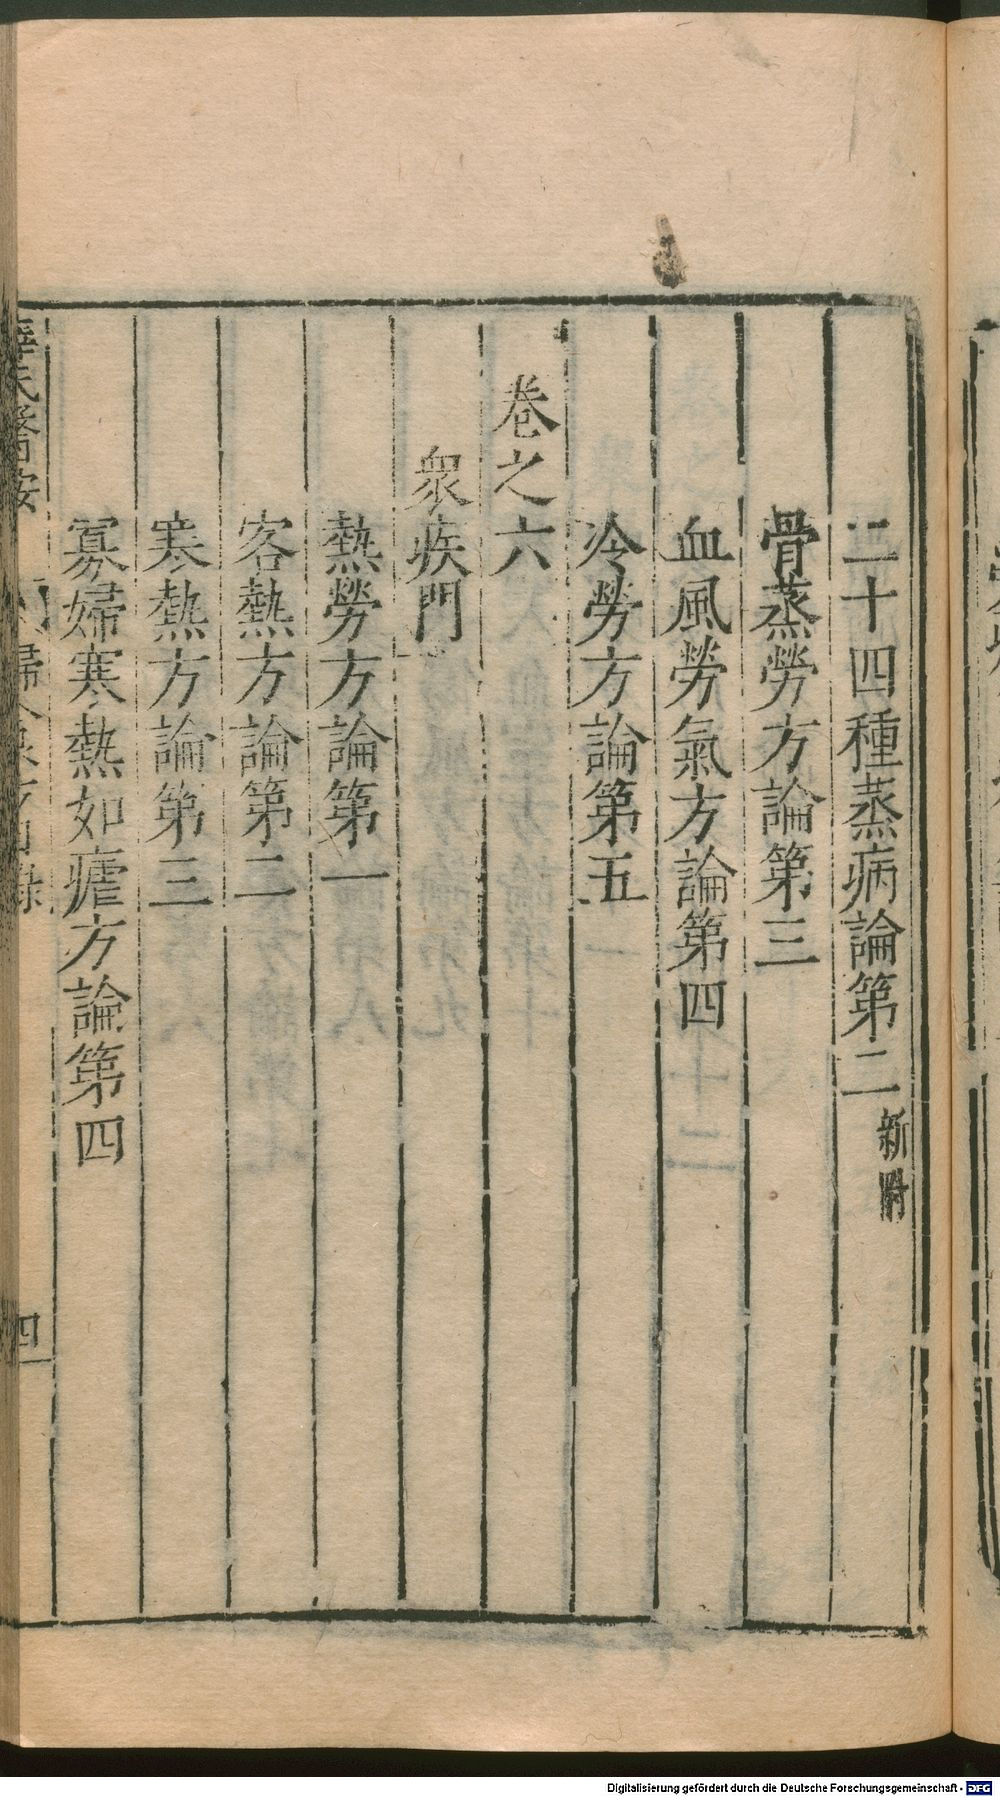 二十四種蒸病論第二新附
骨蒸勞方論第三
血風勞氣方論第四
冷勞方論第五
卷之六
衆疾門
熱勞方論第一
客熱方論第二
寒熱方論第三
寡婦寒熱如瘧方論第四
四
Digitalisierung gefördert durch die Deutsche Forschungsgemeinschaft - DFG